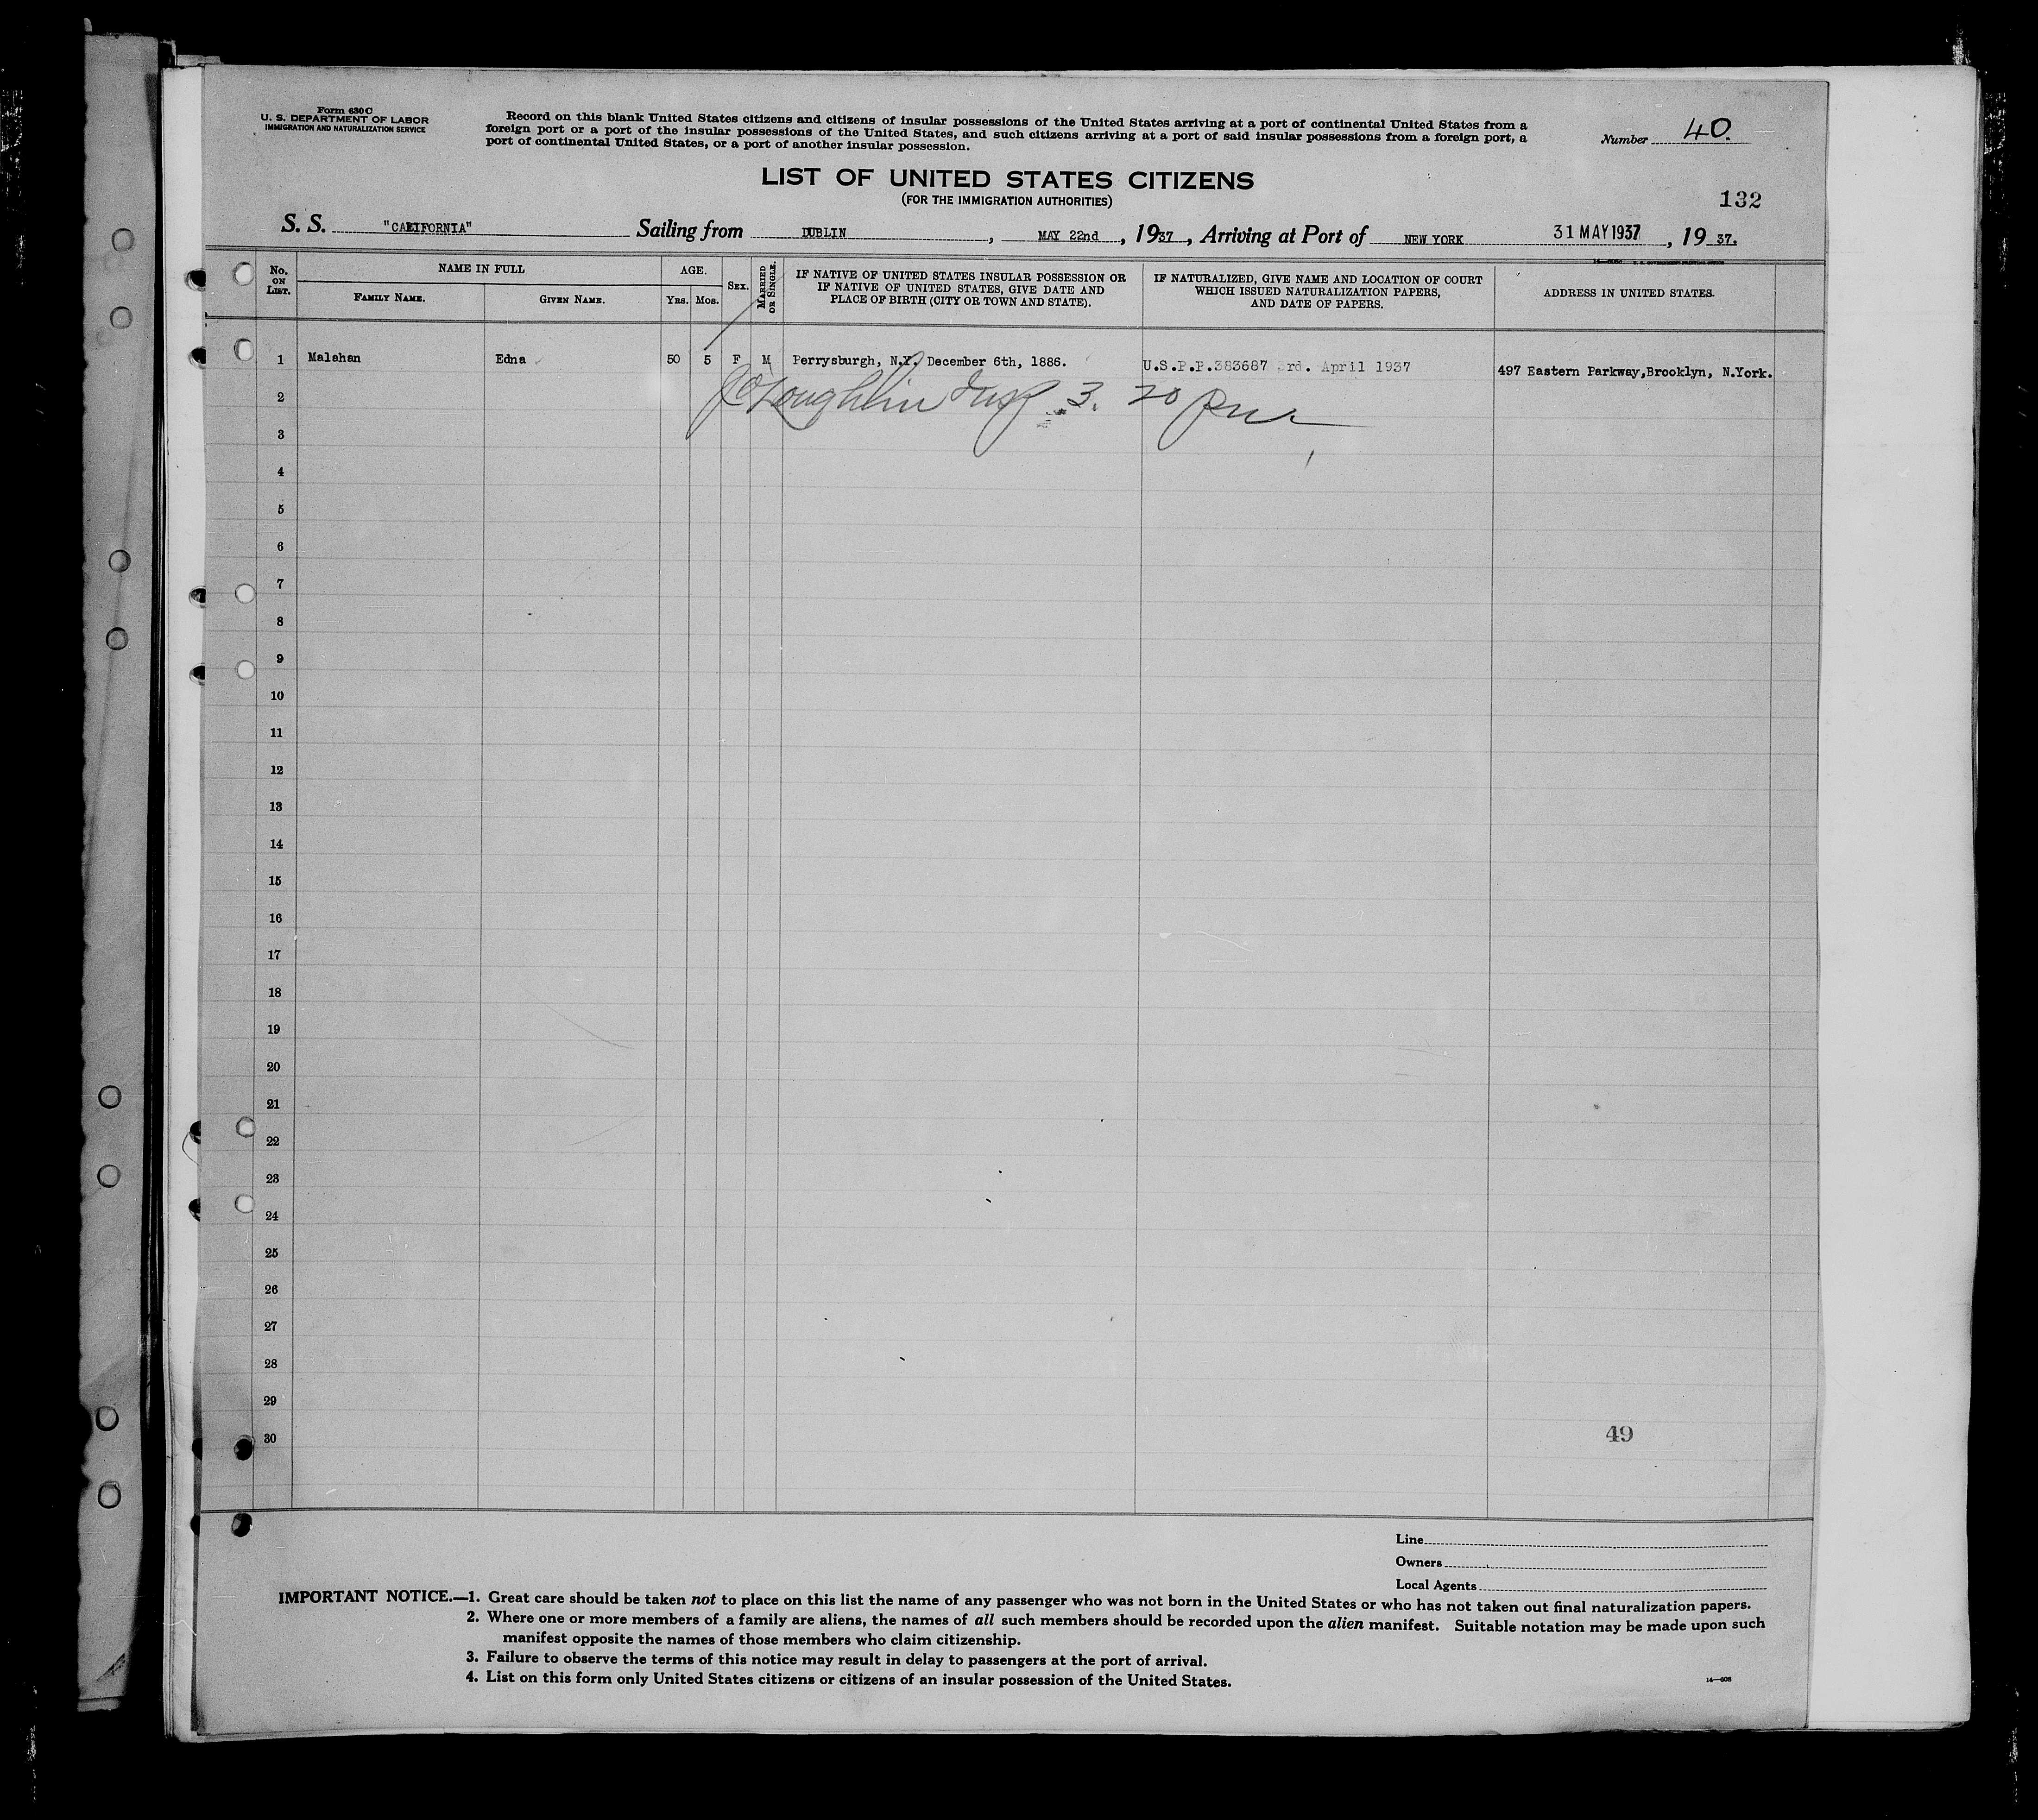 Form 630 C
U. S. DEPARTMENT OF LABOR
IMMIGRATION AND NATURALIZATION SERVICE
Record on this blank United States citizens and citizens of insular possessions of the United States arriving at a port of continental United States from a
foreign port or a port of the insular possessions of the United States, and such citizens arriving at a port of said insular possessions from a foreign port, a
port of continental United States, or a port of another insular possession.
Number 40.
LIST OF UNITED STATES CITIZENS
(FOR THE IMMIGRATION AUTHORITIES)
132
S. S. "CALIFORNIA" Sailing from DUBLIN, MAY 22nd, 1937, Arriving at Port of NEW YORK 31 MAY 1937, 19 37.
No. ON LIST.
NAME IN FULL
FAMILY NAME.
GIVEN NAME.
AGE.
Yrs.
Mos.
SEX.
MARRIED OR SINGLE.
IF NATIVE OF UNITED STATES INSULAR POSSESSION OR
IF NATIVE OF UNITED STATES, GIVE DATE AND
PLACE OF BIRTH (CITY OR TOWN AND STATE).
IF NATURALIZED, GIVE NAME AND LOCATION OF COURT
WHICH ISSUED NATURALIZATION PAPERS,
AND DATE OF PAPERS.
ADDRESS IN UNITED STATES.
1 Malahan Edna 50 5 F M Perrysburgh, N.Y. December 6th, 1886. U.S.P.P.383687 3rd. April 1937 497 Eastern Parkway,Brooklyn, N.York.
O'Loughlin Insp 3. 20 pm
2
3
4
5
6
7
8
9
10
11
12
13
14
15
16
17
18
19
20
21
22
23
24
25
26
27
28
29
30
49
Line
Owners
Local Agents
IMPORTANT NOTICE.—1. Great care should be taken not to place on this list the name of any passenger who was not born in the United States or who has not taken out final naturalization papers.
2. Where one or more members of a family are aliens, the names of all such members should be recorded upon the alien manifest. Suitable notation may be made upon such
manifest opposite the names of those members who claim citizenship.
3. Failure to observe the terms of this notice may result in delay to passengers at the port of arrival.
4. List on this form only United States citizens or citizens of an insular possession of the United States.